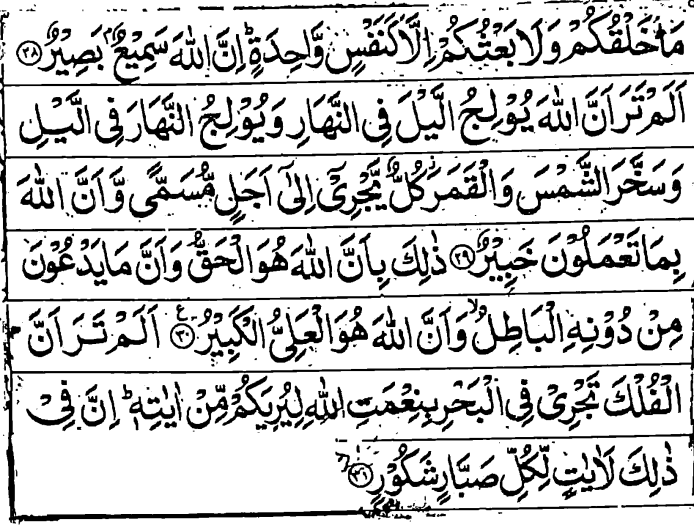 مَا خَلْقُكُمْ وَلَا بَعْثُكُمْ اِلَّا كَنَفْسٍ وَّاحِدَةٍ ؕ اِنَّ اللّٰهَ سَمِيْعٌۢ بَصِيْرٌ ﴿۲۸﴾
اَلَمْ تَرَ اَنَّ اللّٰهَ يُوْلِجُ الَّيْلَ فِى النَّهَارِ وَيُوْلِجُ النَّهَارَ فِى الَّيْلِ
وَسَخَّرَ الشَّمْسَ وَالْقَمَرَ كُلٌّ يَّجْرِىْۤ اِلٰٓى اَجَلٍ مُّسَمًّى وَّاَنَّ اللّٰهَ
بِمَا تَعْمَلُوْنَ خَبِيْرٌ ﴿۲۹﴾ ذٰلِكَ بِاَنَّ اللّٰهَ هُوَ الْحَقُّ وَاَنَّ مَا يَدْعُوْنَ
مِنْ دُوْنِهِ الْبَاطِلُ ۙ وَاَنَّ اللّٰهَ هُوَ الْعَلِىُّ الْكَبِيْرُ ﴿۳۰﴾ ع اَلَمْ تَرَ اَنَّ
الْفُلْكَ تَجْرِىْ فِى الْبَحْرِ بِنِعْمَتِ اللّٰهِ لِيُرِيَكُمْ مِّنْ اٰيٰتِهٖ ؕ اِنَّ فِىْ
ذٰلِكَ لَاٰيٰتٍ لِّكُلِّ صَبَّارٍ شَكُوْرٍ ﴿۳۱﴾